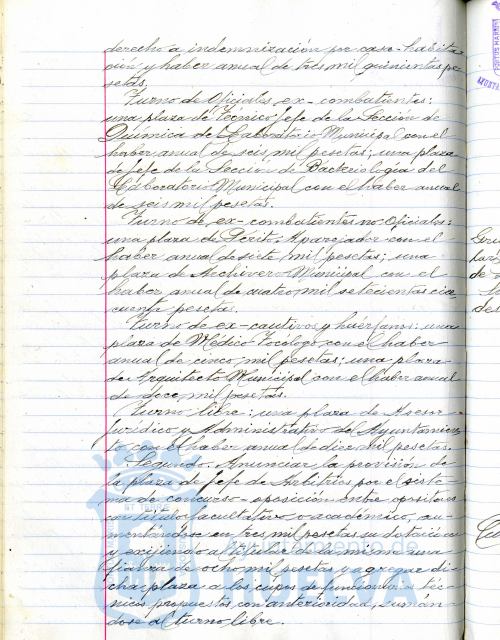 derecho a indemnización por casa-habita
ción y haber anual de tres mil quinientas pe
setas.
Turno de Oficiales ex-combatientes:
una plaza de Técnico Jefe de la Sección de
Química del Laboratorio Municipal con el
haber anual de seis mil pesetas; una plaza
de Jefe de la Sección de Bacteriología del
Laboratorio Municipal con el haber anual
de seis mil pesetas.
Turno de ex-combatientes no Oficiales:
una plaza de Périto Aparejador con el
haber anual de siete mil pesetas; una
plaza de Archivero Municipal con el
haber anual de cuatro mil setecientas cin
cuenta pesetas.
Turno de ex-cautivos y huérfanos: una
plaza de Médico Tocólogo con el haber
anual de cinco mil pesetas; una plaza
de Arquitecto Municipal con el haber anual
de doce mil pesetas.
Turno libre: una plaza de Asesor
Jurídico y Administrativo del Ayuntamien
to con el haber anual de diez mil pesetas.
Segundo. Anunciar la provisión de
la plaza de Jefe de Arbitrios por el siste-
ma de concurso-oposición entre opositores
con título facultativo o académico, au-
mentándose en tres mil pesetas su dotación
y exijiendo al titular de la misma una
fianza de ocho mil pesetas y agregar di
cha plaza a los cupos de funcionarios téc
nicos propuestos con anterioridad, sumán
dose al turno libre.
HUELVA